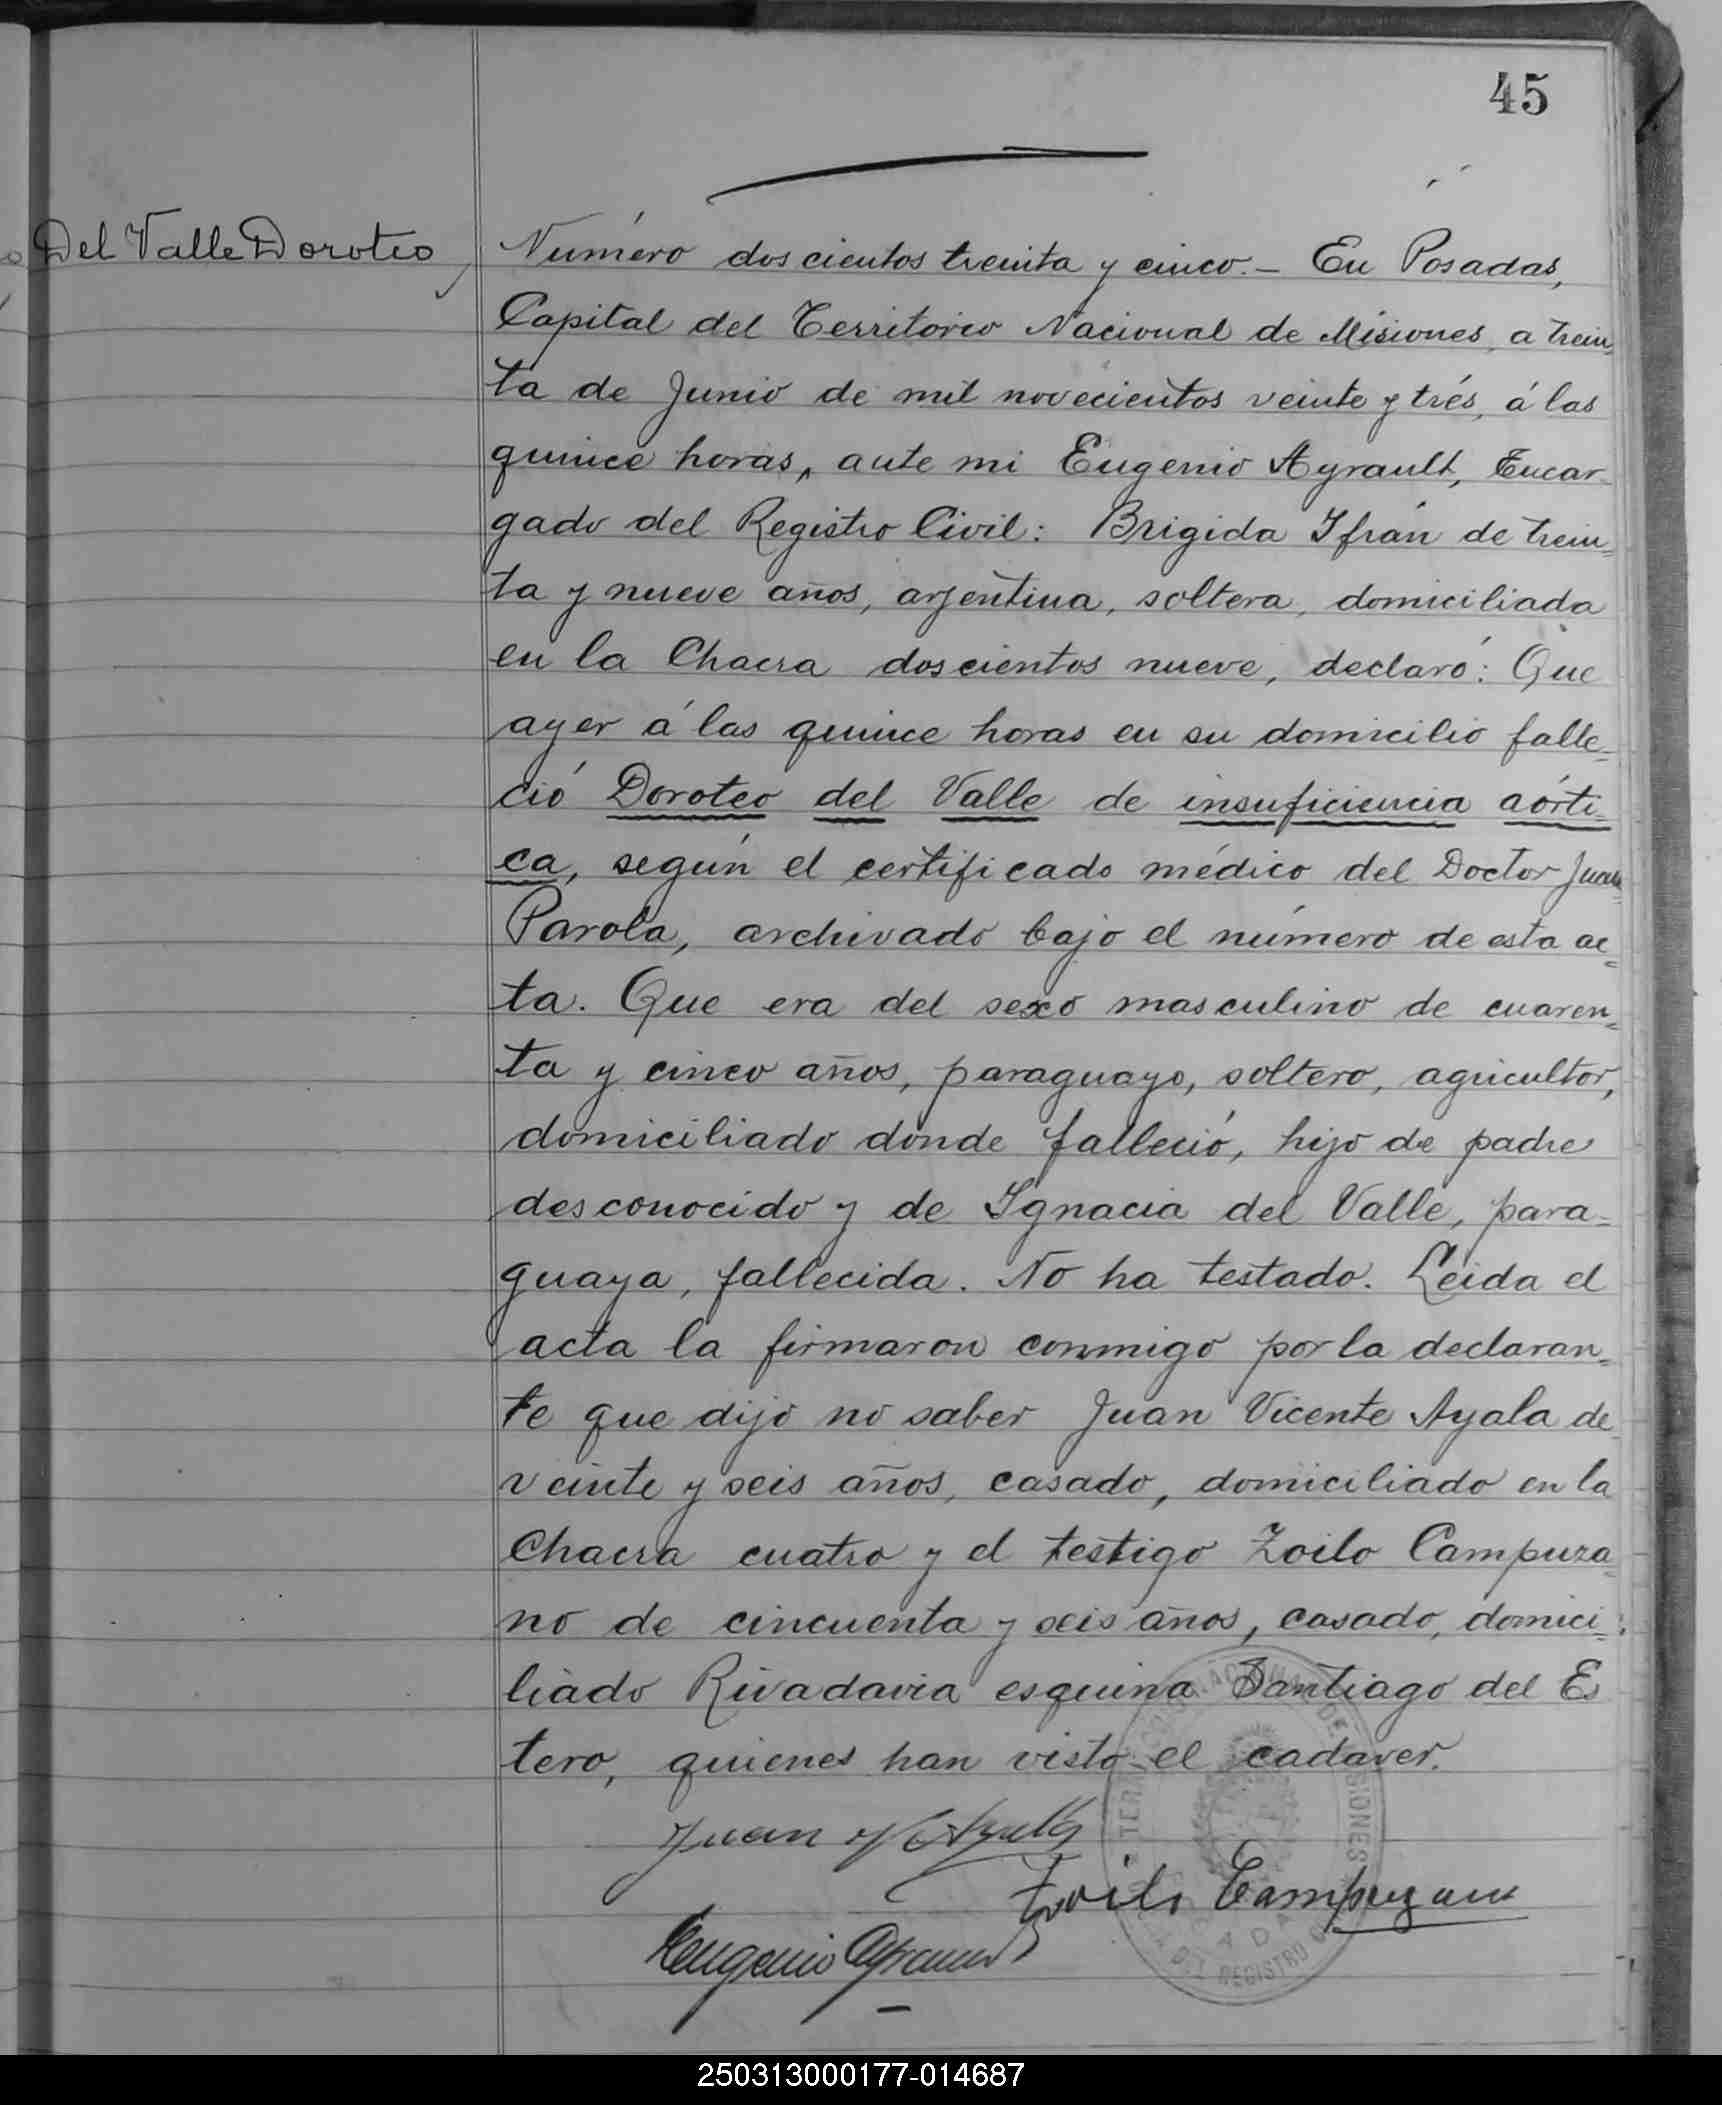 45
Del Valle Doroteo
Número doscientos treinta y cinco.- En Posadas,
Capital del Territorio Nacional de Misiones, a trein-
ta de Junio de mil novecientos veinte y trés, á las
quince horas, ante mi Eugenio Ayrault, Encar-
gado del Registro Civil: Brigida Ifrán de trein-
ta y nueve años, arjentina, soltera, domiciliada
en la Chacra doscientos nueve, declaró: Que
ayer á las quince horas en su domicilio falle-
ció Doroteo del Valle de insuficiencia aórti-
ca, según el certificado médico del Doctor Juan
Parola, archivado bajo el número de esta ac-
ta. Que era del sexo masculino de cuaren-
ta y cinco años, paraguayo, soltero, agricultor,
domiciliado donde falleció, hijo de padre
desconocido y de Ignacia del Valle, para-
guaya, fallecida. No ha testado. Leida el
acta la firmaron conmigo por la declaran-
te que dijo no saber Juan Vicente Ayala de
veinte y seis años, casado, domiciliado en la
Chacra cuatro y el testigo Zoilo Campuza-
no de cincuenta y seis años, casado, domici-
liado Rivadavia esquina Santiago del Es
tero, quienes han visto el cadaver.
Juan V Ayala
Zoilo Campuzano
Eugenio Ayrault
250313000177-014687